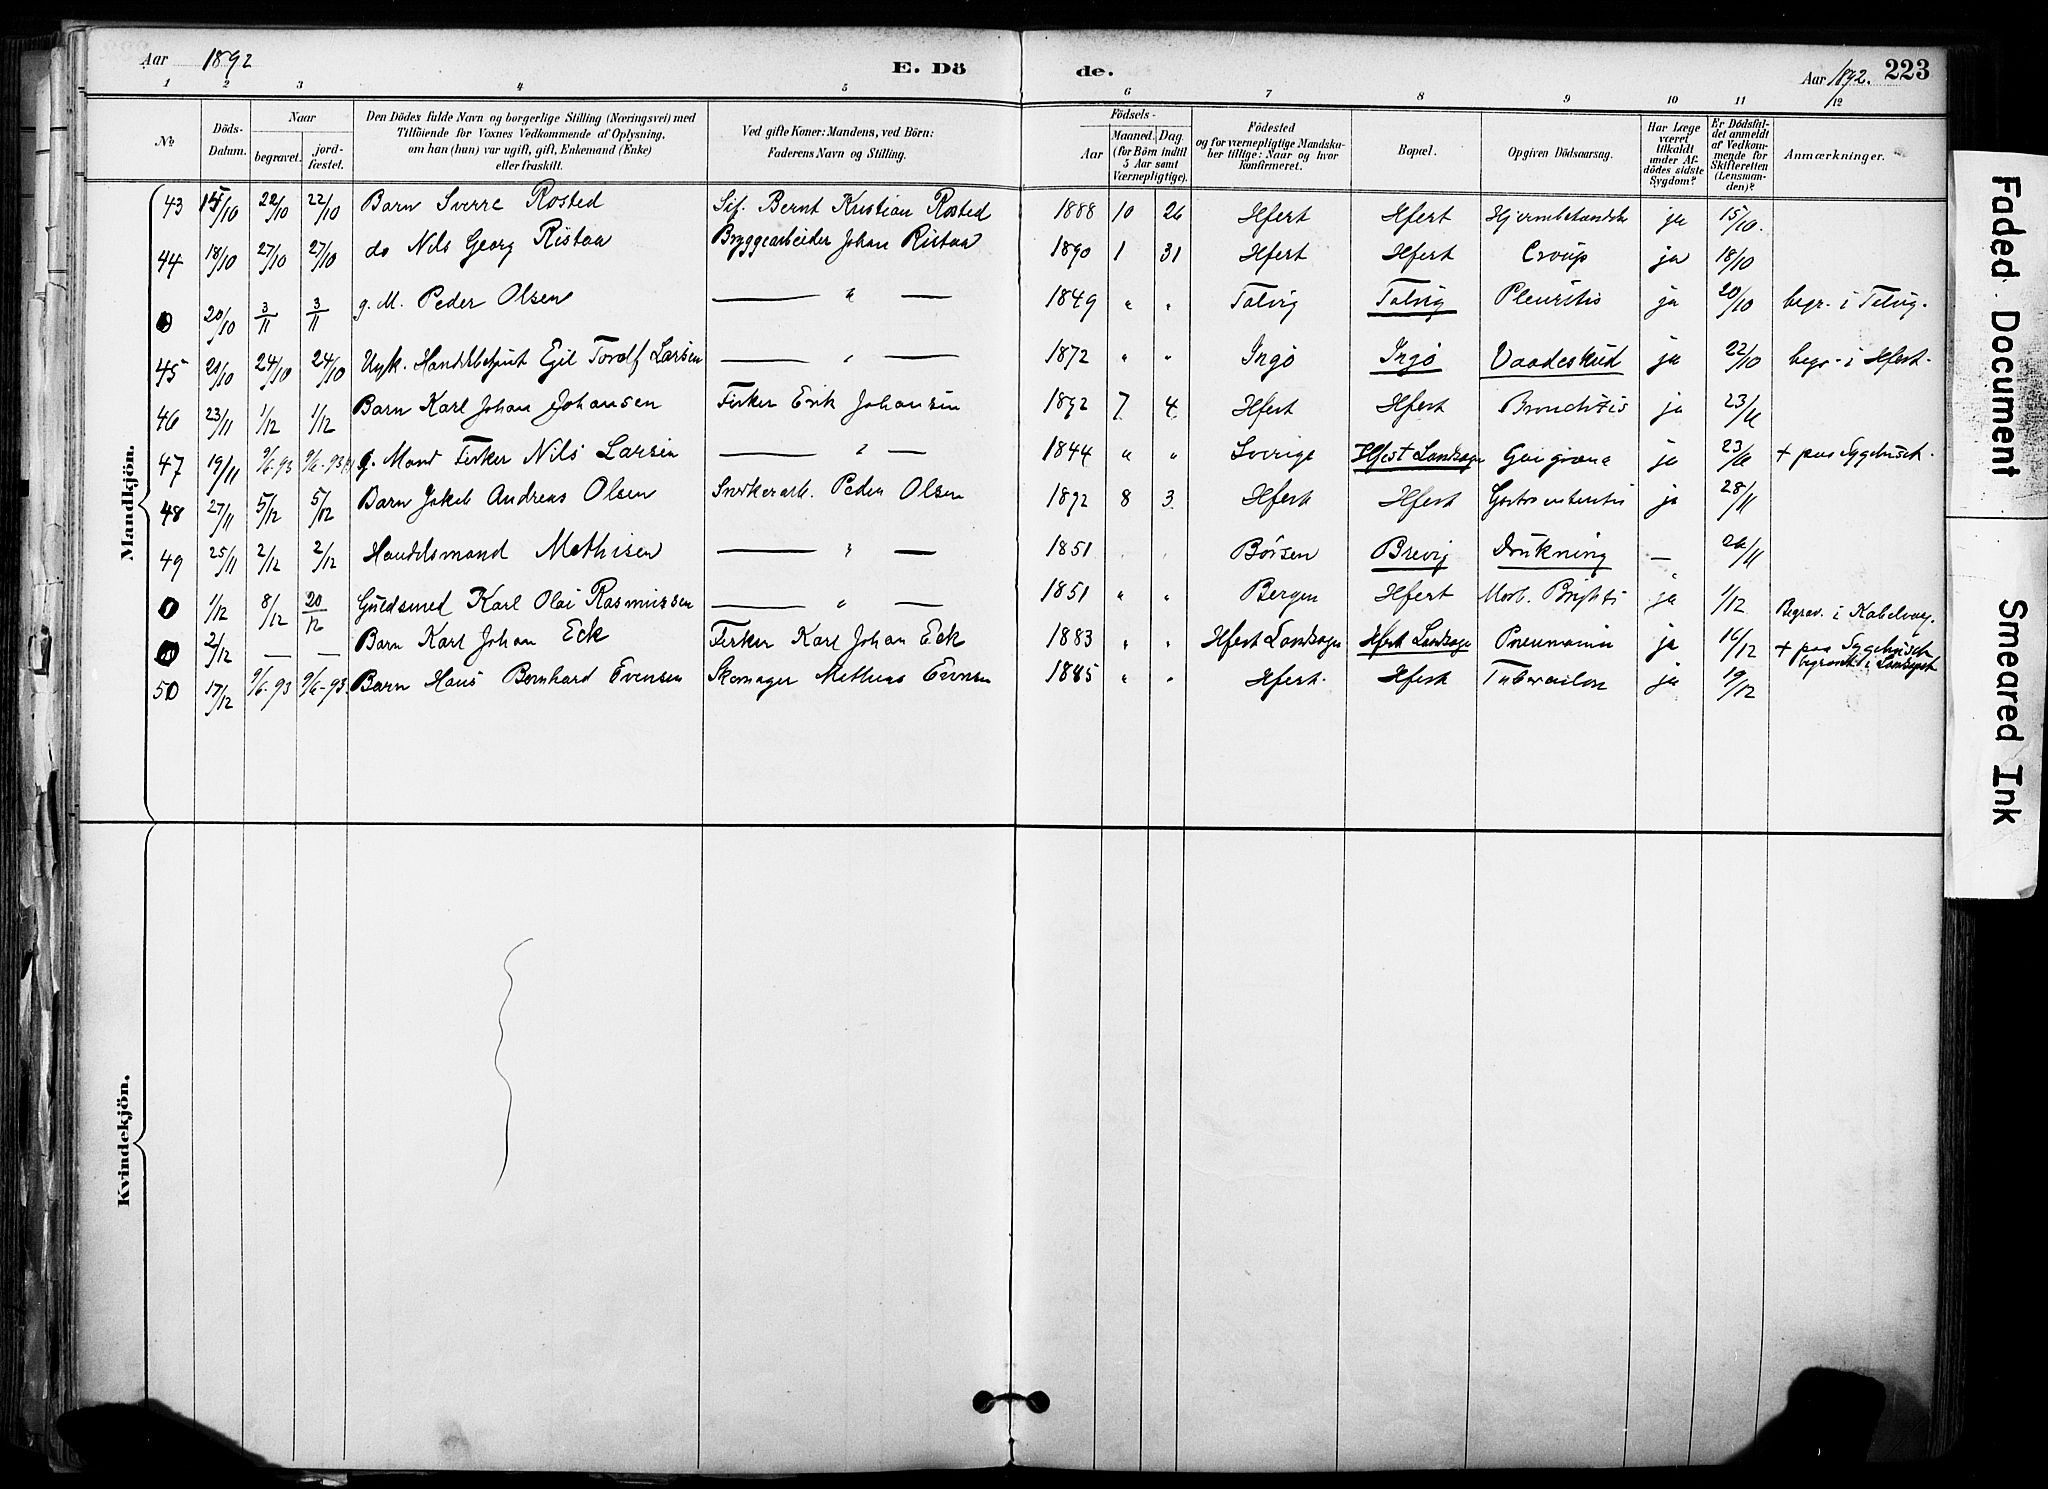 Aar 1892
E. Dö
de.
Aar 1892. 223
1 2 3 4 5 6 7 8 9 10 11 12
No
Döds-Datum.
Naar
begravet.
jord-fæstet.
Den Dödes fulde Navn og borgerlige Stilling (Næringsvei) med
Tilföiende for Voxnes Vedkommende af Oplysning,
om han (hun) var ugift, gift, Enkemand (Enke)
eller fraskilt.
Ved gifte Koner: Mandens, ved Börn:
Faderens Navn og Stilling.
Födsels-
Aar
Maaned. Dag.
(for Börn indtil
5 Aar samt
Værnepligtige).
Födested
og for værnepligtige Mandska-
ber tillige: Naar og hvor
konfirmeret.
Bopæl.
Opgiven Dödsaarsag.
Har Læge
været
tilkaldt
under Af-
dödes sidste
Sygdom?
Er Dödsfal-
det anmeldt
af Vedkom-
mende for
Skifteretten
(Lensman-
den)?
Anmærkninger.
Mandkjön.
43 22/10 22/10 Barn Sverre Rosted Bernt Kristian Rosted 1888 10 26 Hfest Hfest ja 15/10.
44 18/10 27/10 27/10 do Nils Georg Ristaa Bryggearbeider Johan Ristaa 1890 1 31 Hfest Hfest Croup ja 18/10
20/10 3/11 3/11 g. M. Peder Olsen — " — 1849 " " Talvig Talvig Pleuritis ja 20/10 begr. i Talvig.
45 21/10 24/10 24/10 Egil Torolf Larsen — " — 1872 " " Ingø Ingø Vaadeskud ja 22/10 begr. i Hfest.
46 23/11 1/12 1/12 Barn Karl Johan Johansen Fisker Erik Johansen 1892 7. 4. Hfest Hfest Bronchitis ja 23/11
47 19/11 9/6-93 9/6-93 g. Mand Fisker Nils Larsen — " — 1844 " " Sverige Hfest Landsogn Gangræna ja 23/11 + paa Sygehuset.
48 27/11 5/12 5/12 Barn Jakob Andreas Olsen Snekkerarb. Peder Olsen 1892 8 3. Hfest Hfest Gastroenteritis ja 28/11
49 25/11 2/12 2/12 Handelsmand Mathisen — " — 1851 " " Børsen Brevig Drukning — 26/11
1/12 8/12 20/12 Guldsmed Karl Olai Rasmussen — " — 1851 " " Bergen Hfest Morb. Brightii ja 1/12 Begrav. i Kabelvaag.
2/12 — — Barn Karl Johan Eck Fisker Karl Johan Eck 1883 " " Hfest Landsogn Hfest Landsogn Pneumonia ja 16/12 + paa Sygehuset
begravet i Landsognet
50 17/12 9/6-93 9/6-93 Barn Hans Bernhard Evensen Skomager Mathias Evensen 1885 " " Hfest. Hfest Tuberculose ja 19/12
Kvindekjön.
Faded Document
Smeared Ink